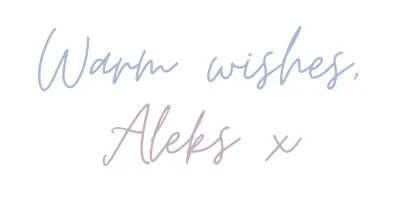 Warm wishes,
Aleks x